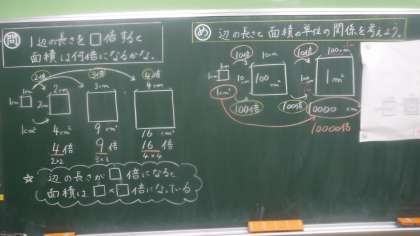 問 1辺の長さを□倍すると
面積は何倍になるかな。
2倍 3倍 4倍
1cm 2cm 3cm 4cm
1cm 2cm
1cm² 4cm² 9cm² 16cm²
4倍 9倍 16倍
2×2 3×3 4×4
☆ 辺の長さが□倍になると
面積は□×□倍になっている
め 辺の長さと面積の単位の関係を考えよう。
10倍 10cm 10倍 100cm
1cm² 100cm² 1m²
100倍 100倍 10000cm²
10000倍